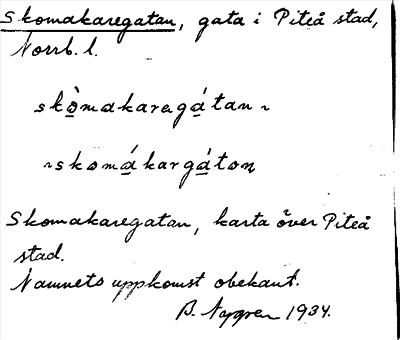 Skomakaregatan, gata i Piteå stad,
Norrb. l.
skò̲makaregá̲tan ~
~skomá̲kargá̲ton
Skomakaregatan, karta över Piteå
stad.
Namnets uppkomst obekant.
B. Nygren 1934.